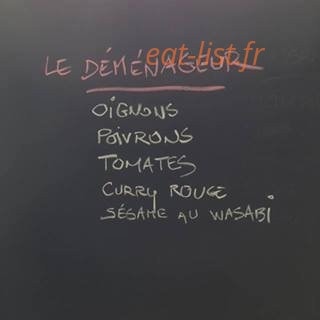 eat-list.fr
LE DÉMÉNAGEUR
OIGNONS
POIVRONS
TOMATES
CURRY ROUGE
SÉSAME AU WASABI